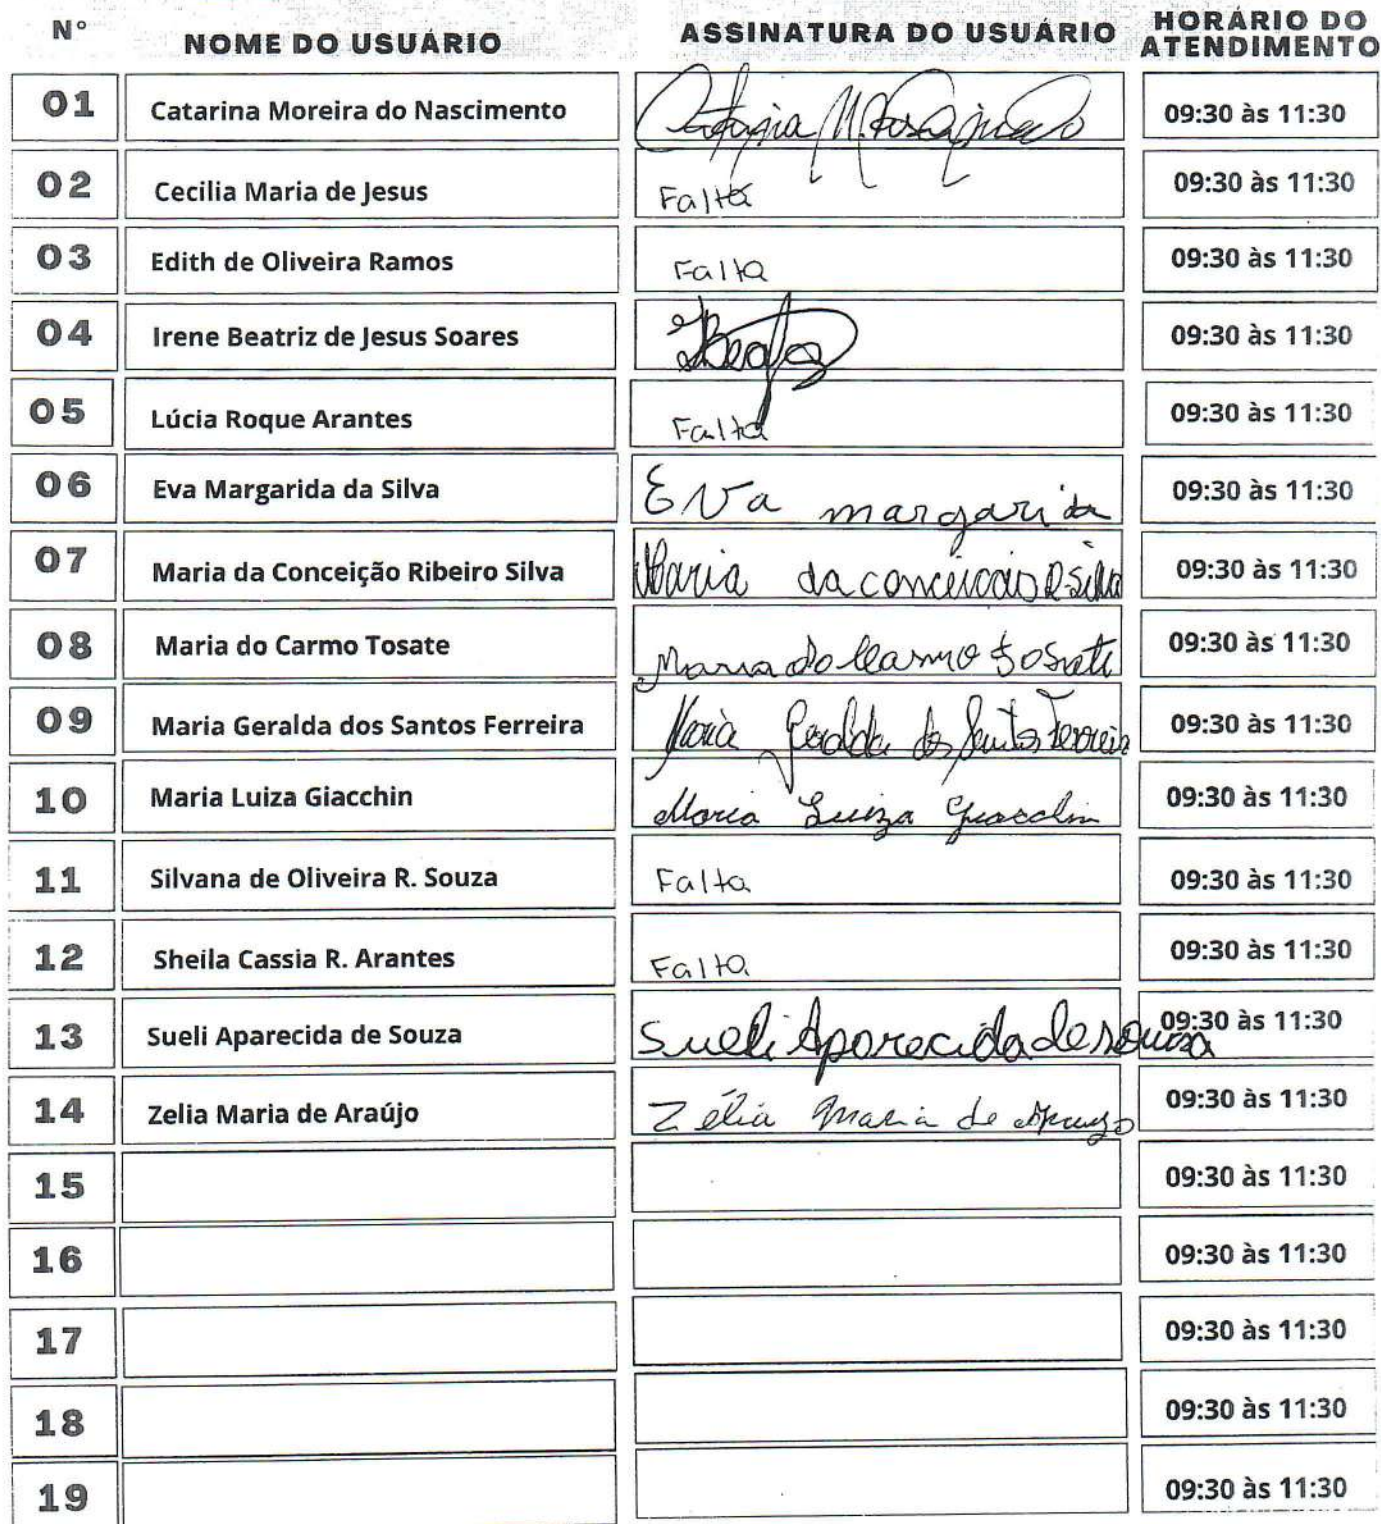 Nº NOME DO USUÁRIO ASSINATURA DO USUÁRIO HORÁRIO DO ATENDIMENTO
01 Catarina Moreira do Nascimento 09:30 às 11:30
02 Cecilia Maria de Jesus Falta 09:30 às 11:30
03 Edith de Oliveira Ramos Falta 09:30 às 11:30
04 Irene Beatriz de Jesus Soares 09:30 às 11:30
05 Lúcia Roque Arantes Falta 09:30 às 11:30
06 Eva Margarida da Silva Eva margarida 09:30 às 11:30
07 Maria da Conceição Ribeiro Silva Maria da conceicais R. Silva 09:30 às 11:30
08 Maria do Carmo Tosate Maria do Carmo Tosati 09:30 às 11:30
09 Maria Geralda dos Santos Ferreira Maria Geralda dos Santos Ferreira 09:30 às 11:30
10 Maria Luiza Giacchin Maria Luiza Giacchin 09:30 às 11:30
11 Silvana de Oliveira R. Souza Falta 09:30 às 11:30
12 Sheila Cassia R. Arantes Falta 09:30 às 11:30
13 Sueli Aparecida de Souza Sueli Aparecida de souza 09:30 às 11:30
14 Zelia Maria de Araújo Zélia Maria de Araujo 09:30 às 11:30
15 09:30 às 11:30
16 09:30 às 11:30
17 09:30 às 11:30
18 09:30 às 11:30
19 09:30 às 11:30